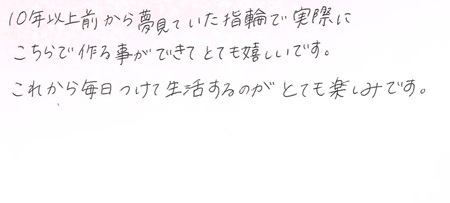 10年以上前から夢見ていた指輪で実際に
こちらで作る事ができてとても嬉しいです。
これから毎日つけて生活するのがとても楽しみです。